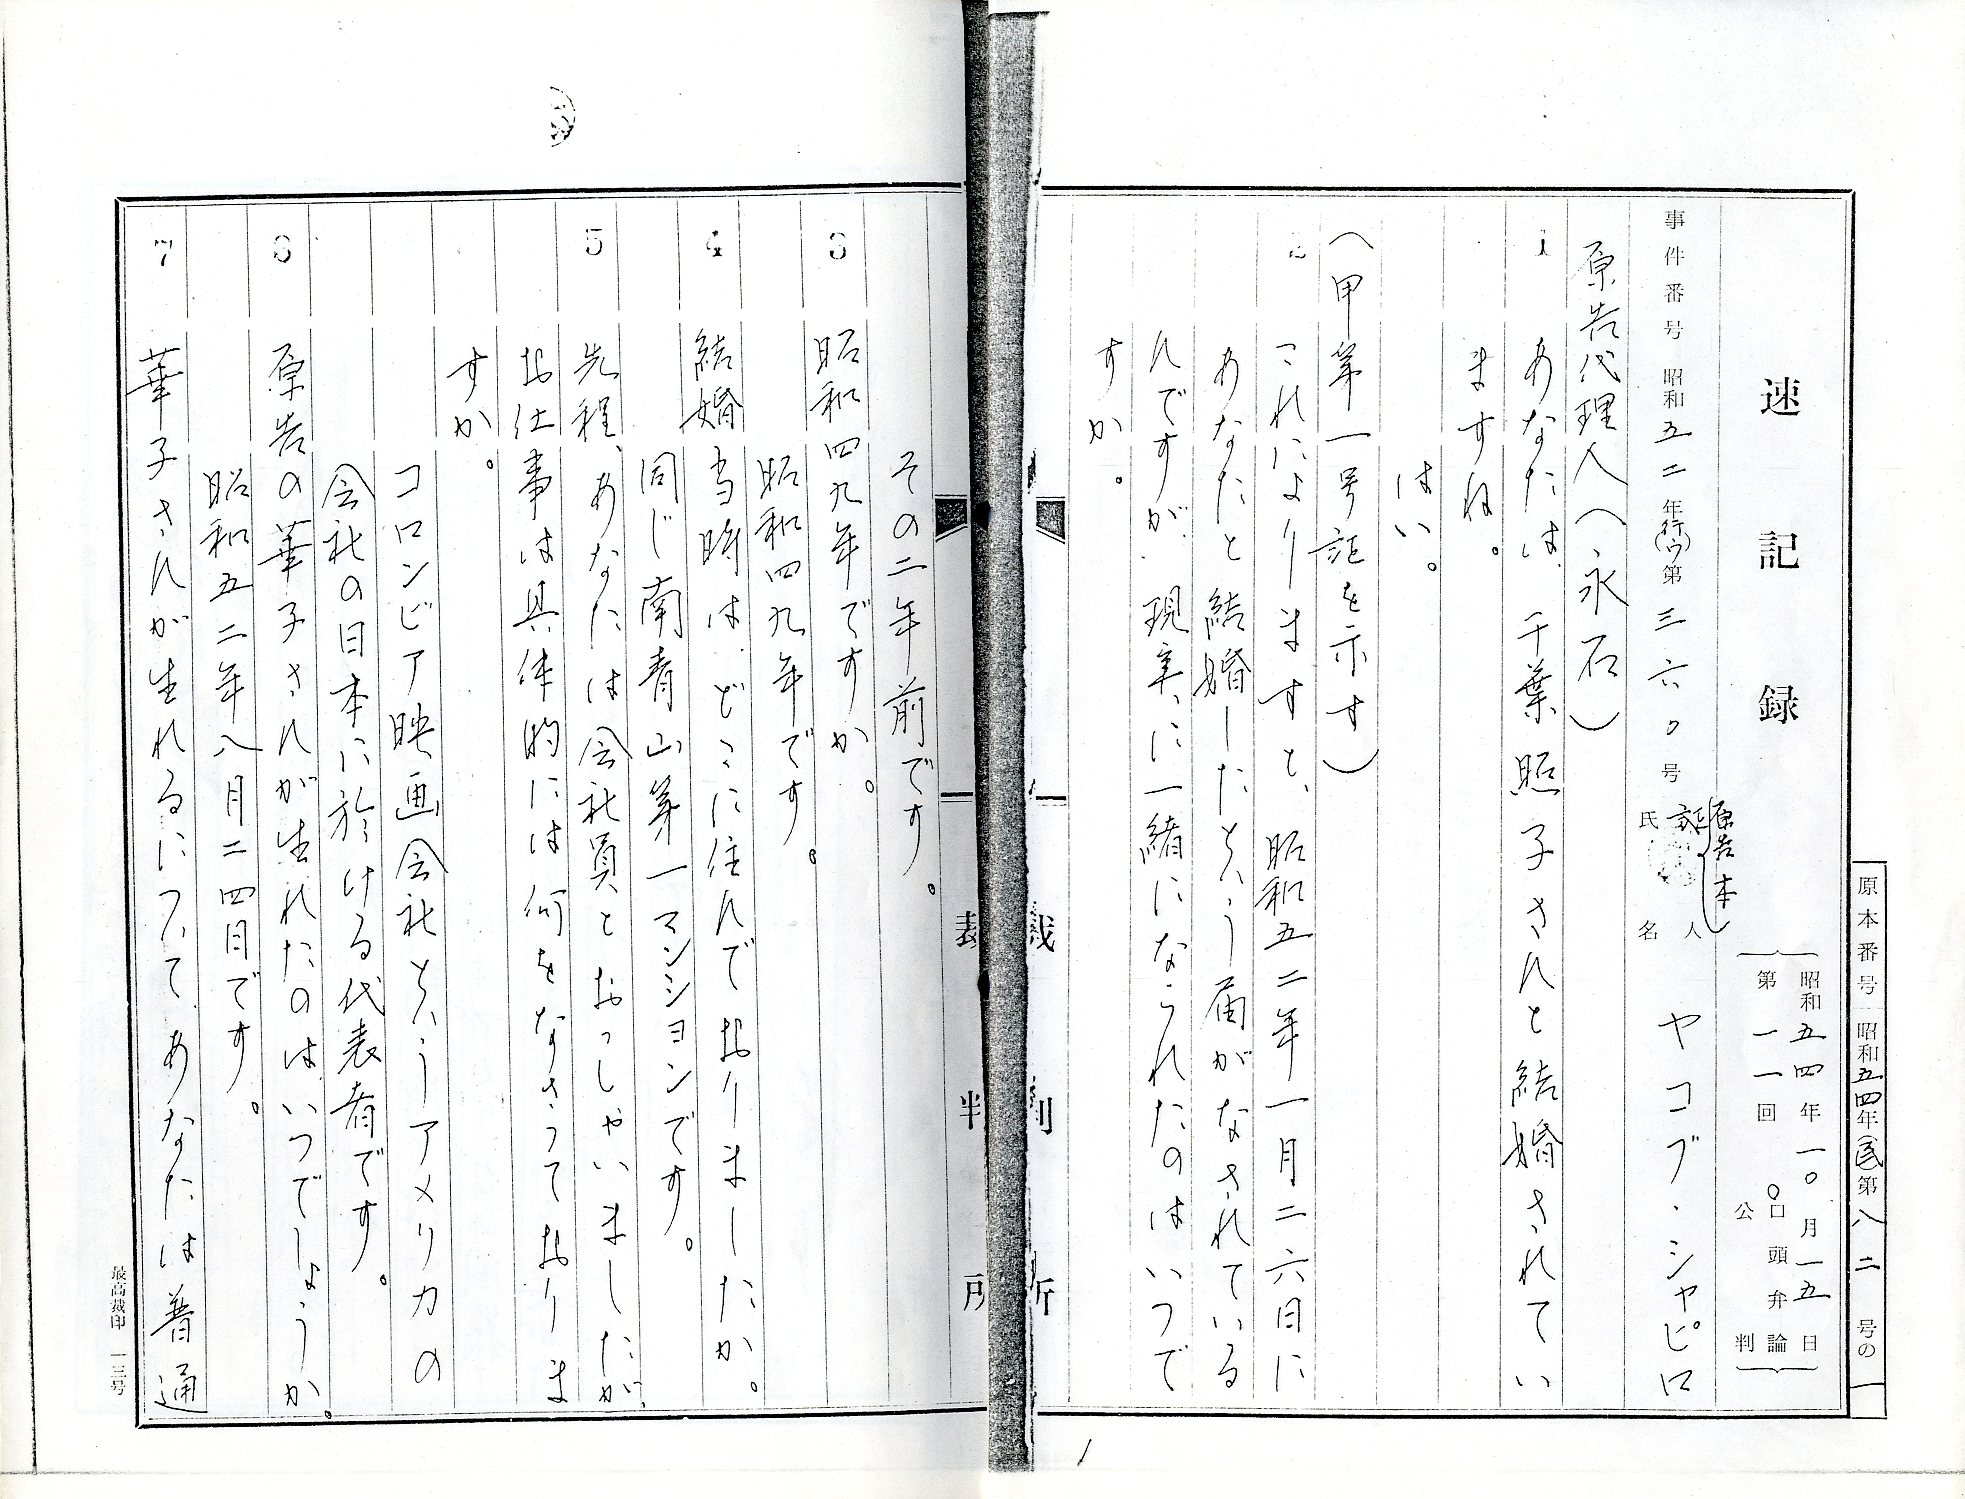 原本番号 昭和五四年(民)第八二号の一
速記録
昭和五四年一〇月一五日
第一一回 口頭弁論
公判
事件番号 昭和五二年行(ウ)第三六〇号
原告本人
氏名 ヤコブ・シャピロ
原告代理人(永石)
1 あなたは、千葉照子さんと結婚されてい
ますね。
はい。
(甲第一号証を示す)
2 これによりますと、昭和五二年一月二六日に
あなたと結婚したという届がなされている
んですが、現実に一緒になられたのはいつで
すか。
裁判所
1
裁判所
その二年前です。
3 昭和四九年ですか。
昭和四九年です。
4 結婚当時は、どこに住んでおりましたか。
同じ南青山第一マンションです。
5 先程、あなたは会社員とおっしゃいましたが、
お仕事は具体的には何をなさっておりま
すか。
コロンビア映画会社というアメリカの
会社の日本に於ける代表者です。
6 原告の華子さんが生れたのは、いつでしょうか。
昭和五二年八月二四日です。
7 華子さんが生れるについて、あなたは普通
最高裁印 一三号